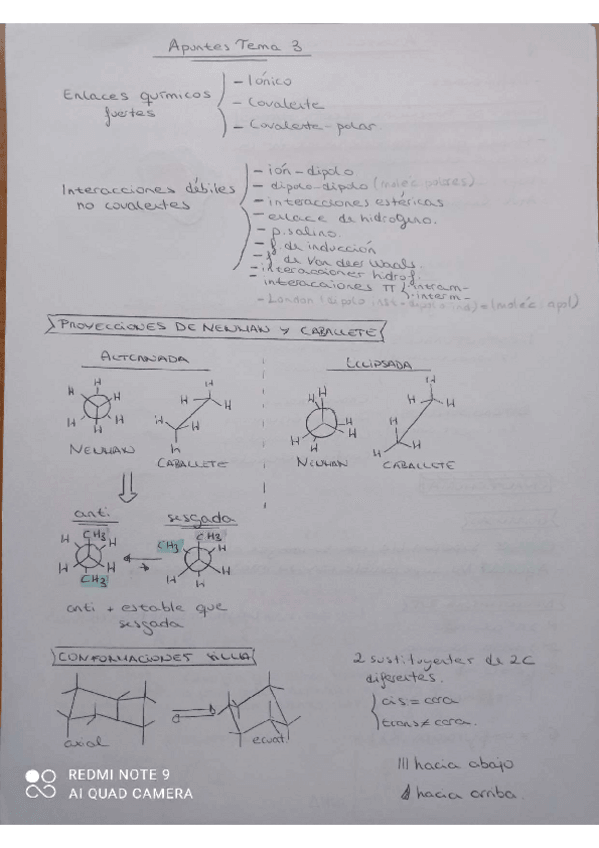 Apuntes Tema 3
Enlaces químicos fuertes
- Iónico
- Covalente
- Covalente-polar
Interacciones débiles no covalentes
- ión-dipolo
- dipolo-dipolo (moléc. polares)
- interacciones estéricas
- enlace de hidrógeno.
- p. salino.
- f. de inducción
- f de Van deer Waals.
- interacciones hidrof.
- interaccaiones π intram- interm-
- London (dipolo inst - dipolo ind) = (moléc. apol)
PROYECCIONES DE NEWMAN Y CABALLETE
ALTERNADA
ECLIPSADA
H H H H H H
H H H H H H
H H H H H H
H H H H H H
NEWMAN
CABALLETE
NEWMAN
CABALLETE
anti
sesgada
CH3
H H
H H
CH3
CH3 CH3
H H
H H
anti + estable que
sesgada
CONFORMACIONES SILLA
axial
ecuat.
2 sustituyentes de 2C
diferentes.
cis = cara
trans ≠ cara.
hacia abajo
hacia arriba.
REDMI NOTE 9
AI QUAD CAMERA